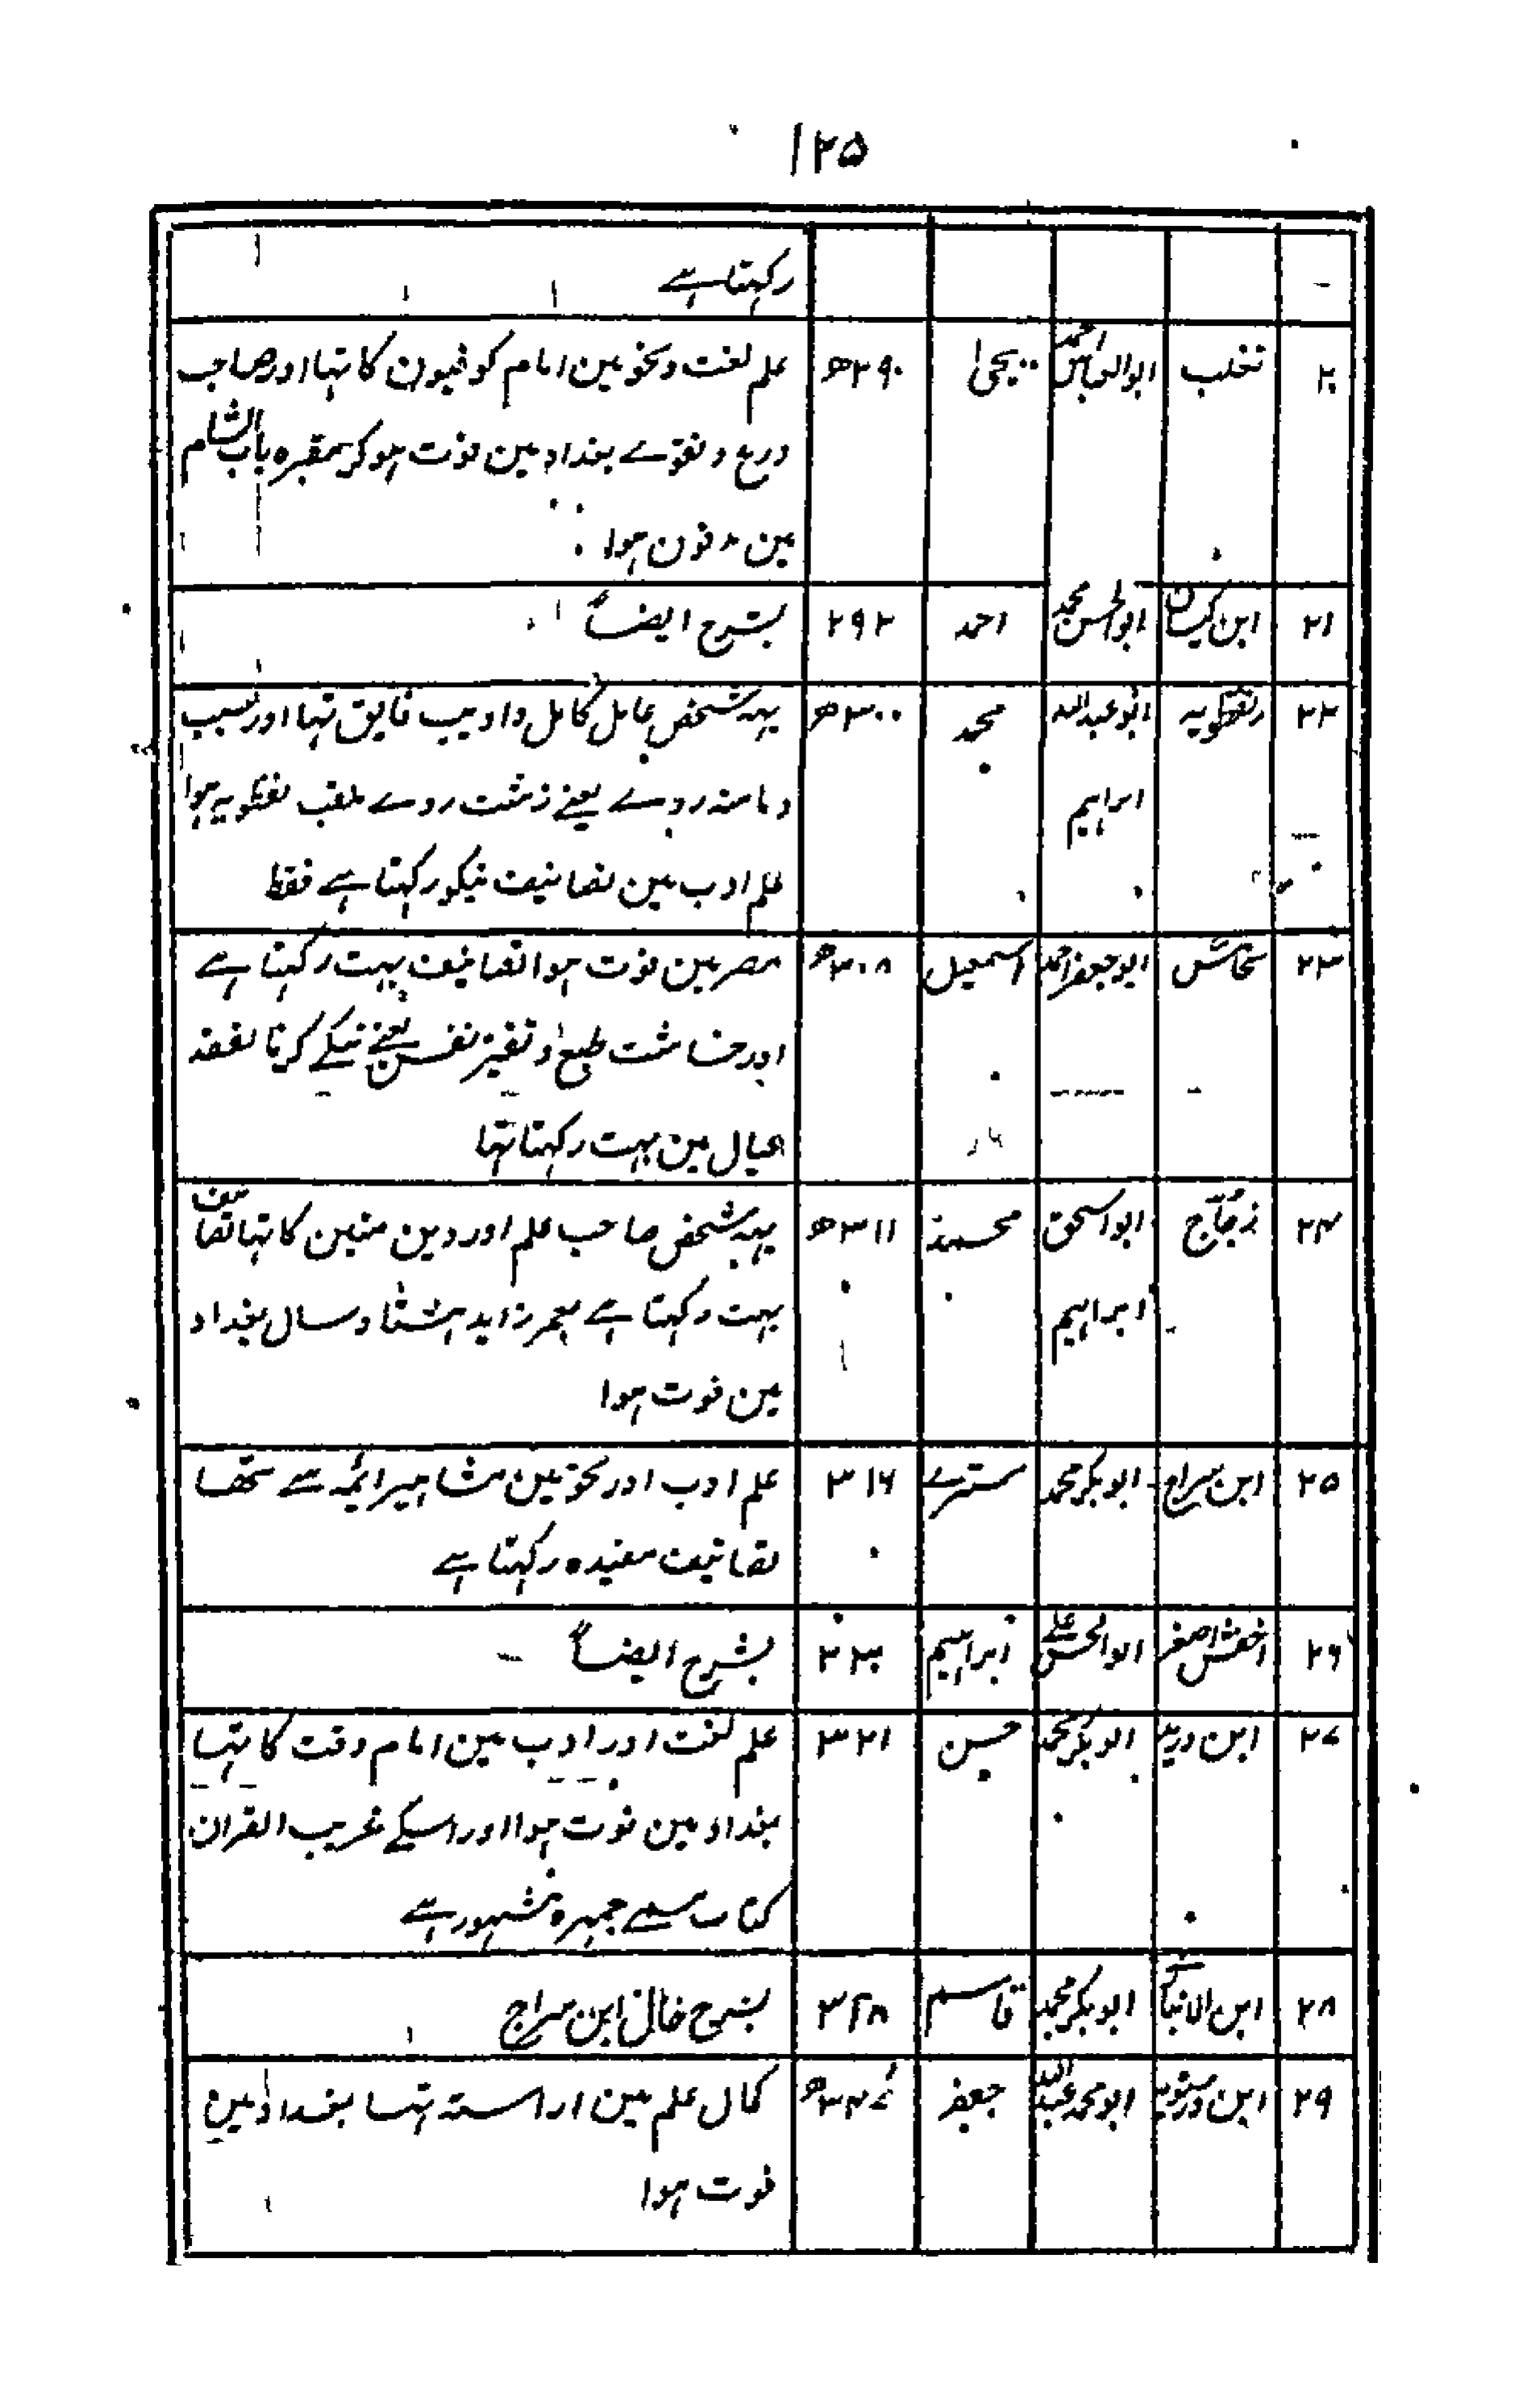 ۱۲۵
رکہتا ہے
۲۰ ثعلب ابوالعباس احمد یحییٰ ۲۹۰ھ علم لغت ونحو مین امام کوفیون کا تہا اور صاحب
ورع و تقوے بغداد مین فوت ہوکر بمقبرہ باب الشام
مین مدفون ہوا
۲۱ ابن کیسان ابوالحسن محمد احمد ۲۹۲ بشرح ایضاً
۲۲ نفطویہ ابو عبداللہ محمد ۳۰۰ھ یہہ شخص عامل کامل وادیب فایق تہا اور بسبب
ابراہیم ومامتہ روے یعنے زشت روے ملقب نفطویہ ہوا
علم ادب مین تصانیف نیکو رکہتا ہے فقط
۲۳ نحاس ابوجعفر احمد اسمعیل ۳۰۸ھ مصر مین فوت ہوا تصانیف بہت رکہتا ہے
اور خساست طبع و تقتیر نفس یعنے تنگے کرنا نفقہ
عیال مین بہت رکہتا تہا
۲۴ زجّاج ابواسحق محمد ۳۱۱ھ یہہ شخص صاحب علم اور دین متین کا تہا تصانیف
ابراہیم بہت رکہتا ہے بعمر زاید ہشتاد سال بغداد
مین فوت ہوا
۲۵ ابن سراج ابوبکر محمد سترے ۳۱۶ علم ادب اور نحو مین مشاہیر ائمہ سے تھا
تصانیف مفیدہ رکہتا ہے
۲۶ اخفش اصغر ابوالحسن علے ابراہیم ۳۲۰ بشرح ایضاً
۲۷ ابن درید ابوبکر محمد حسن ۳۲۱ علم لغت اور ادب مین امام وقت کا تہا
بغداد مین فوت ہوا اور اسکے غریب القران
کتاب مسمے جمہرہ مشہور ہے
۲۸ ابن الانباری ابوبکر محمد قاسم ۳۲۸ بشرح خال ابن سراج
۲۹ ابن درستویہ ابومحمد عبداللہ جعفر ۳۴۷ھ کمال علم مین اراستہ تہا بغداد مین
فوت ہوا